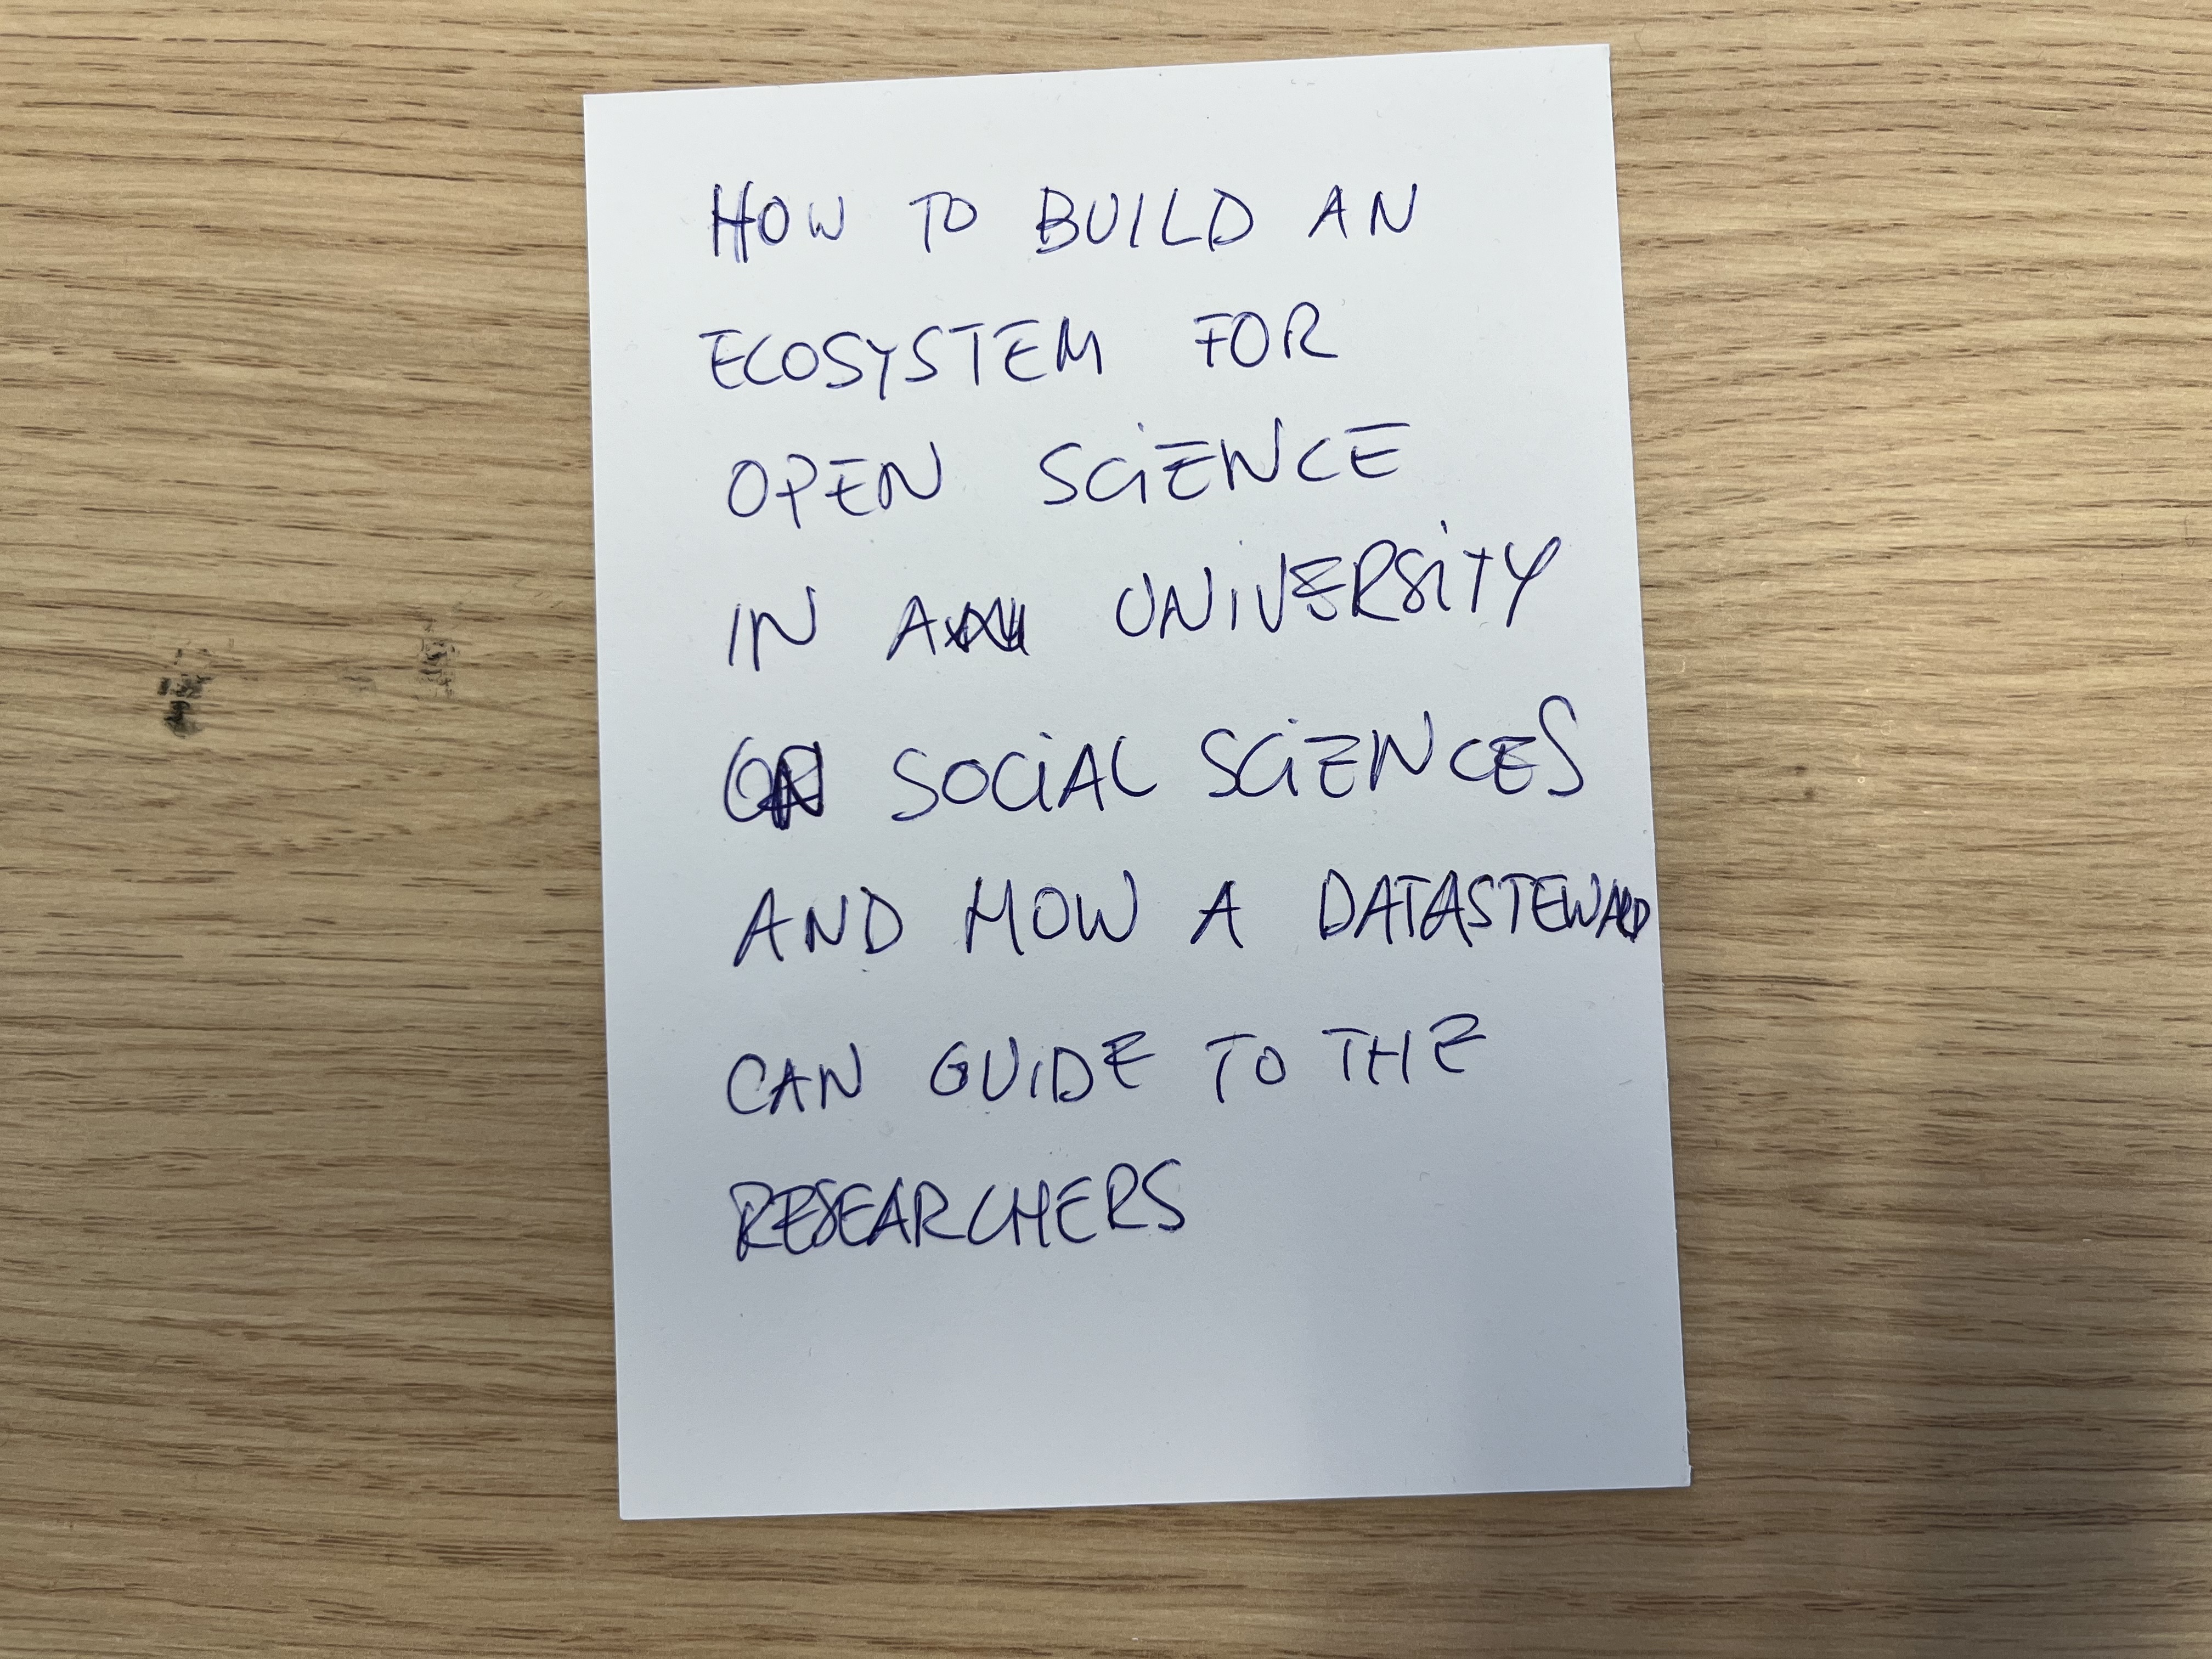 HOW TO BUILD AN
ECOSYSTEM FOR
OPEN SCIENCE
IN A UNIVERSITY
ON SOCIAL SCIENCES
AND HOW A DATASTEWARD
CAN GUIDE TO THE
RESEARCHERS